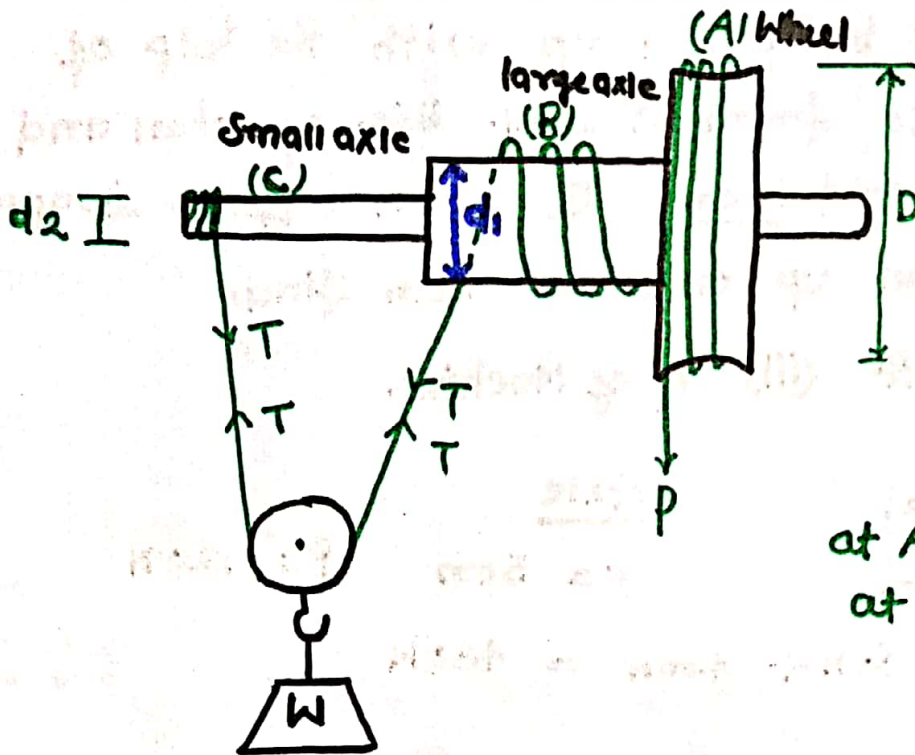 (A) Wheel
large axle
(B)
Small axle
(C)
d2
d1
D
T
T
T
T
P
at A
at
W